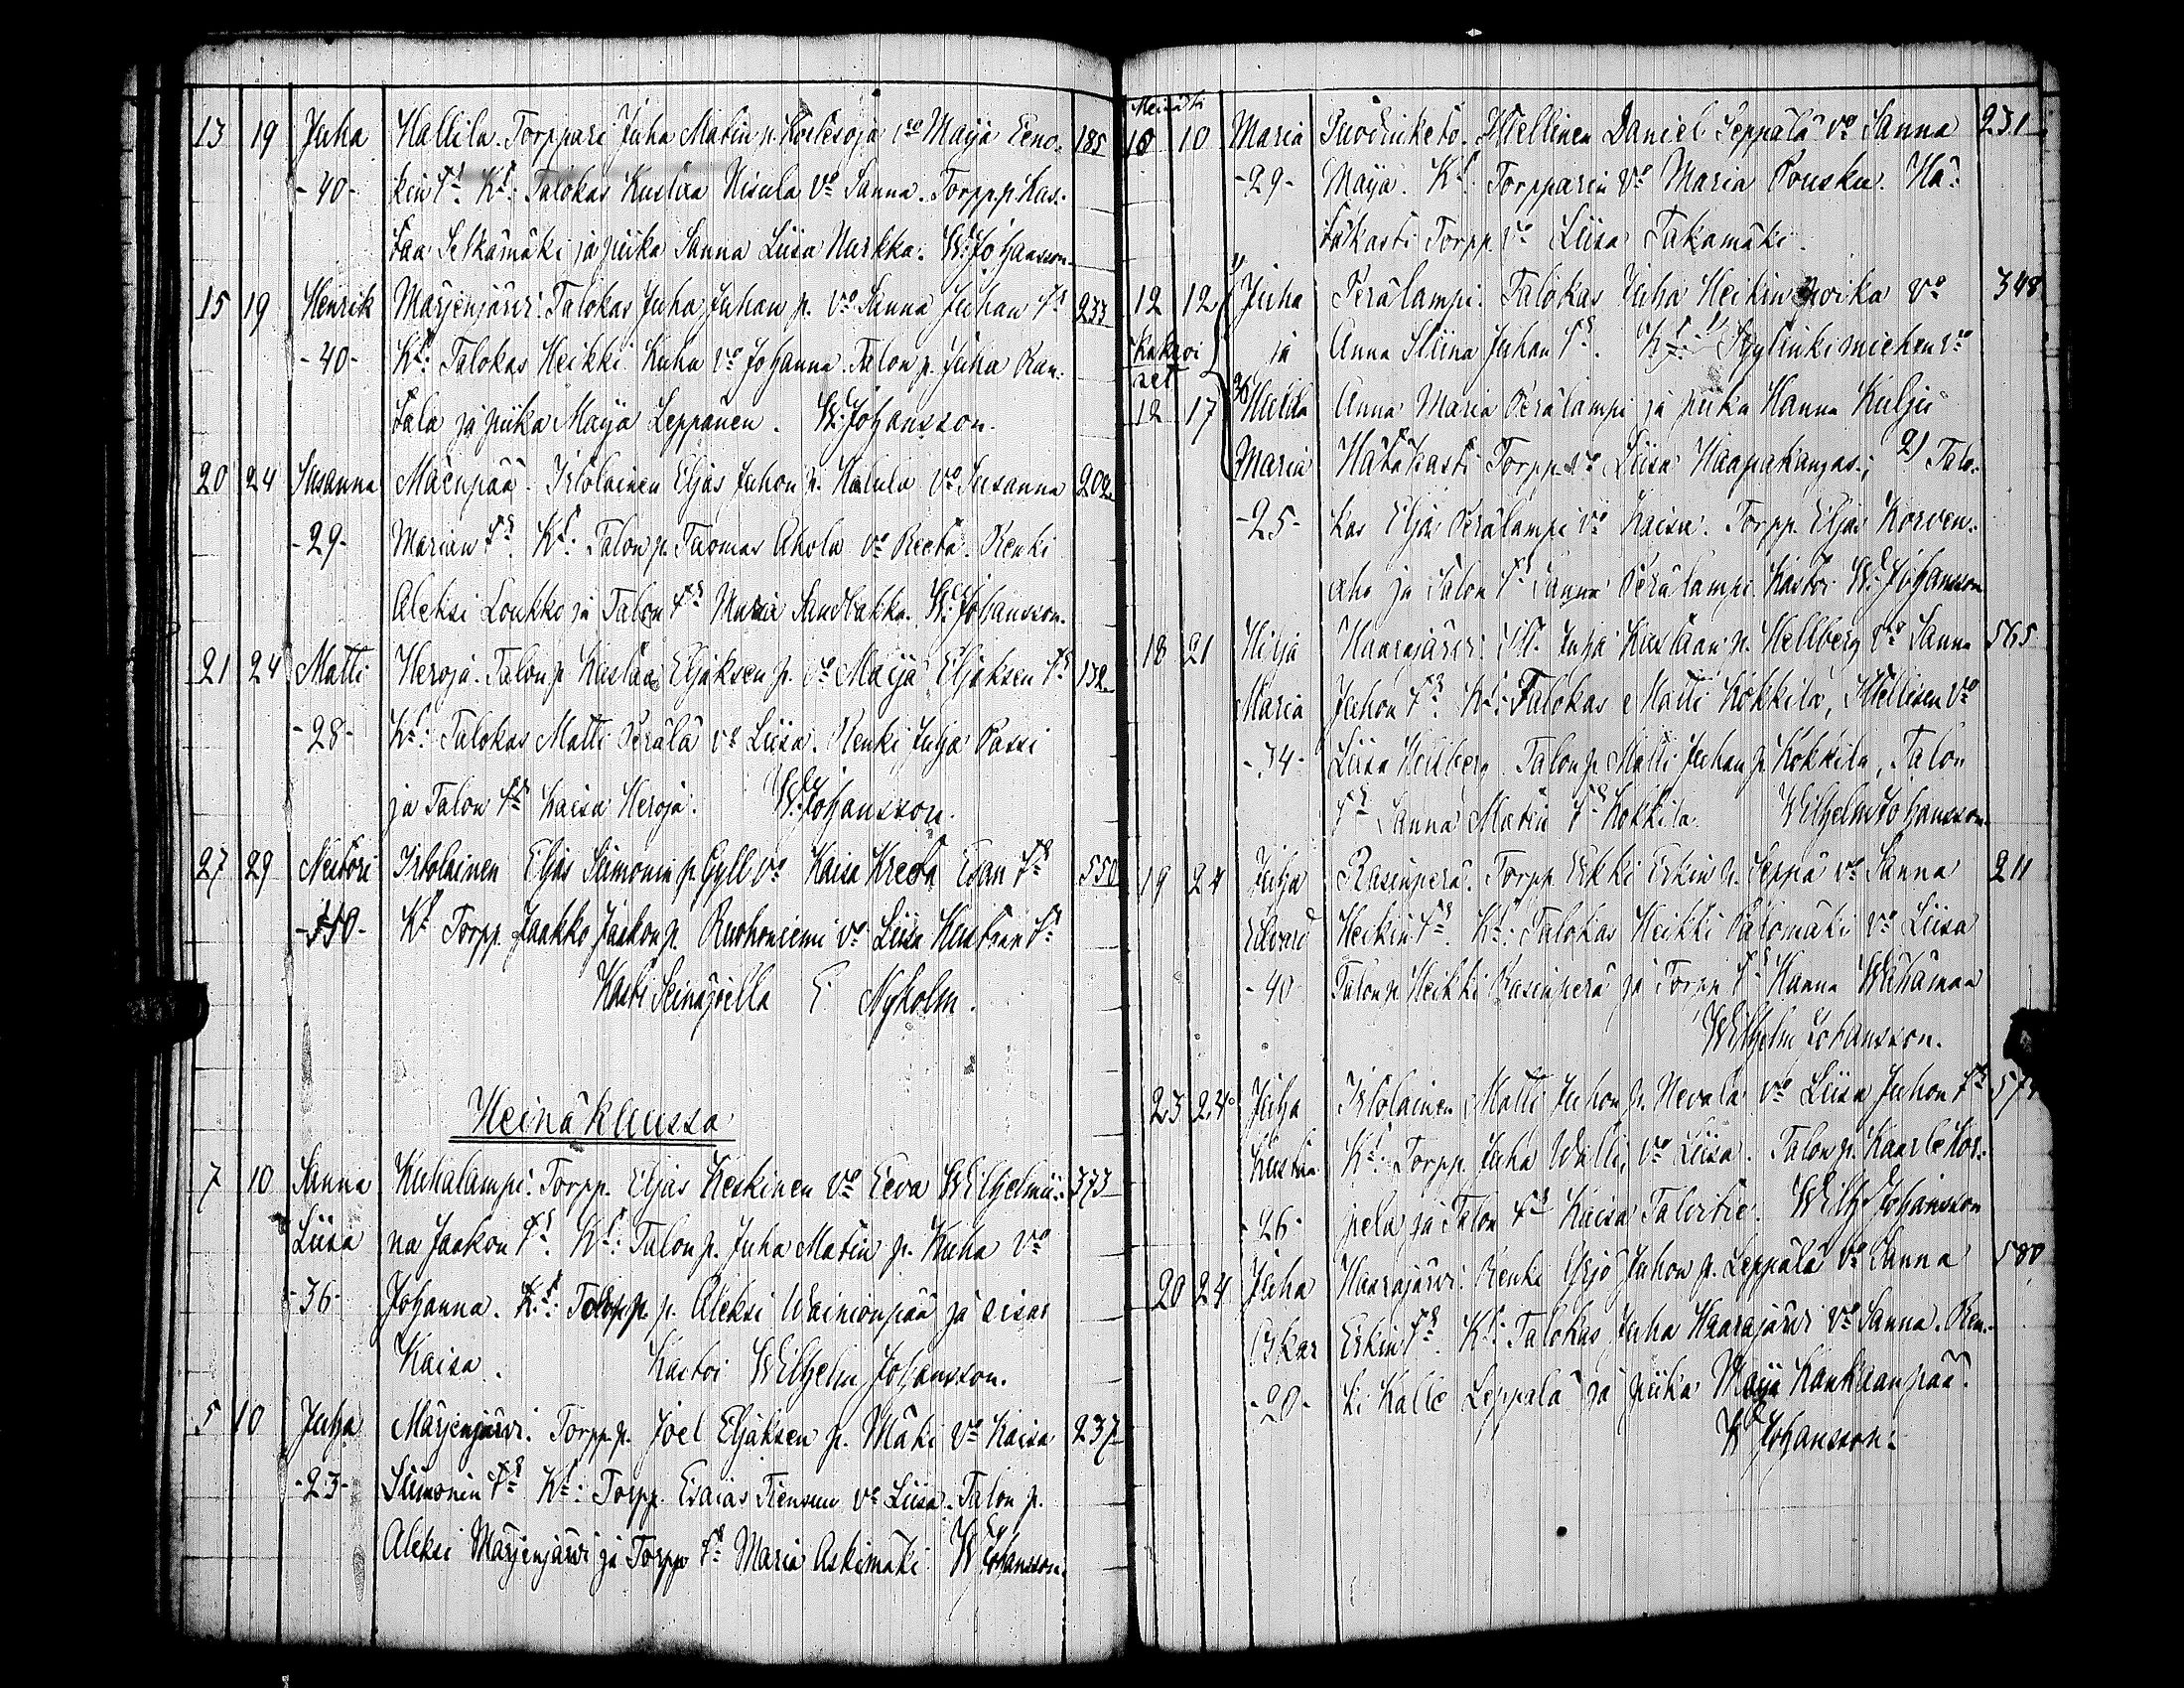 13 19 Juha Hallila. Torppari Juha Matin p. Koskesoja vo Maija Eeno- 185
-40- kin tr. Kt: Talokas Kustaa Nisula vo Sanna. Torpp. p. Kus-
taa Selkämäki ja piika Sanna Liisa Hurkka. W. Johansson.
15 19 Henrik Marjenjärvi. Talokas Juha Juhan p. vo Sanna Juhan tr 233
-40- Kt: Talokas Heikki Kuha vo Johanna. Talon p. Juha Ran-
tala ja piika Maija Leppänen. W. Johansson.
20 24 Susanna Mäenpää. Itlolainen Eljas Juhon p. Halula vo Susanna 202
-29- Marian tr. Kt: Talon p. Tuomas Ahola vo Reeta. Renki
Aleksi Loukko ja Talon tr Maria Sandbakka. W. Johansson.
21 24 Matti Heroja. Talon p Kustaa Eljaksen p. vo Maija Eljaksen tr 132
-28- Kt: Talokas Matti Perälä vo Liisa. Renki Juha Passi
ja Talon tr Kaisa Heroja. W. Johansson.
27 29 Nestori Itlolainen Eljas Siimonin p. Gyll vo Kaisa Kreeta Esan tr 550
Kt Torpp. Jaakko Jaakon p. Ruohoniemi vo Liisa Kustaan tr
Kasti Seinäjoella E. Nyholm.
Heinäkuussa
7 10 Sanna Kuhalampi. Torpp. Eljas Keskinen vo Eeva Wilhelmii- 373
Liisa na Jaakon tr. Kt: Talon p. Juha Matin p. Kuha vo
-36- Johanna. Kt: p. Aleksi Wainionpää ja sisar
Kaisa. Kastoi Wilhelm Johansson.
5 10 Juha Marjenjärvi. Torpp. p. Joel Eljaksen p. Mäki vo Kaisa 237
-23- Siimonin tr Kt: Torpp. Esaias Tiensuu vo Liisa. Talon p.
Aleksi Marjenjärvi ja Torpp tr Maria Askimäki W Johansson.
Heinäk
10 10 Maria Suodinketo. Itellinen Daniel Seppälä vo Sanna 231
-29- Maija. Kt: Torpparin vo Maria Pousku. Hä-
täkasti Torpp. vo Liisa Takamäki.
12 12 1) Juha Perälampi. Talokas Juha Heikin poika vo 348
Kaksoi ja Anna Stiina Juhan tr. Kt: 1) Syylinkimiehen vo
set
12 17 2) Hulda Anna Maria Perälampi ja piika Hanna Kulju
Maria Hätäkasti Torpp. vo Liisa Haapakangas; 2) Talo-
-25- kas Elja Perälampi vo Kaisa. Torpp. Eljas Korven-
aho ja Talon tr Sanna Perälampi. Kastoi W. Johansson
18 21 Hilja Haarajärvi. Itl. Juha Kustaan p. Hellberg vo Sanna 565
Maria Juhon tr. Kt: Talokas Matti Kokkila, Itellisen vo
-34- Liisa Hellberg. Talon p. Matti Juhan p. Kokkila, Talon
tr Sanna Matin tr Kokkila. Wilhelm Johansson.
19 24 Juha Rasinperä. Torpp. Erkki Erkin p. Seppä vo Sanna 211
Edvard Heikin tr. Kt: Talokas Heikki Palomäki vo Liisa
-40 Talon p. Heikki Rasinperä ja Torpp tr Hanna Wähämaa
Wilhelm Johansson.
23 24 Juha Itlolainen Matti Juhon p. Nevala vo Liisa Juhon tr
Kustaa Kt: Torpp. Juha Walli, vo Liisa. Talon p. Kaarle Kor-
-26- pela ja Talon tr Kaisa Talvitie. Wilh. Johansson
20 24 Juha Haarajärvi. Renki Yrjö Juhon p. Leppälä vo Sanna 580
Oskar Erkin tr. Kt: Talokas Juha Haarajärvi vo Sanna. Ren-
-20- ki Kalle Leppälä ja piika Maija Kankaanpää.
W Johansson.